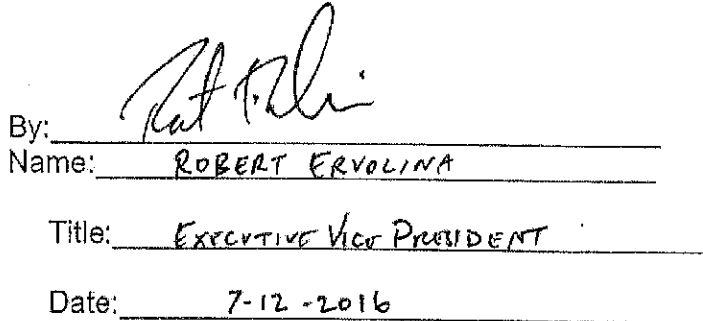 By:
Name: ROBERT ERVOLINA
Title: EXECUTIVE VICE PRESIDENT
Date: 7-12-2016